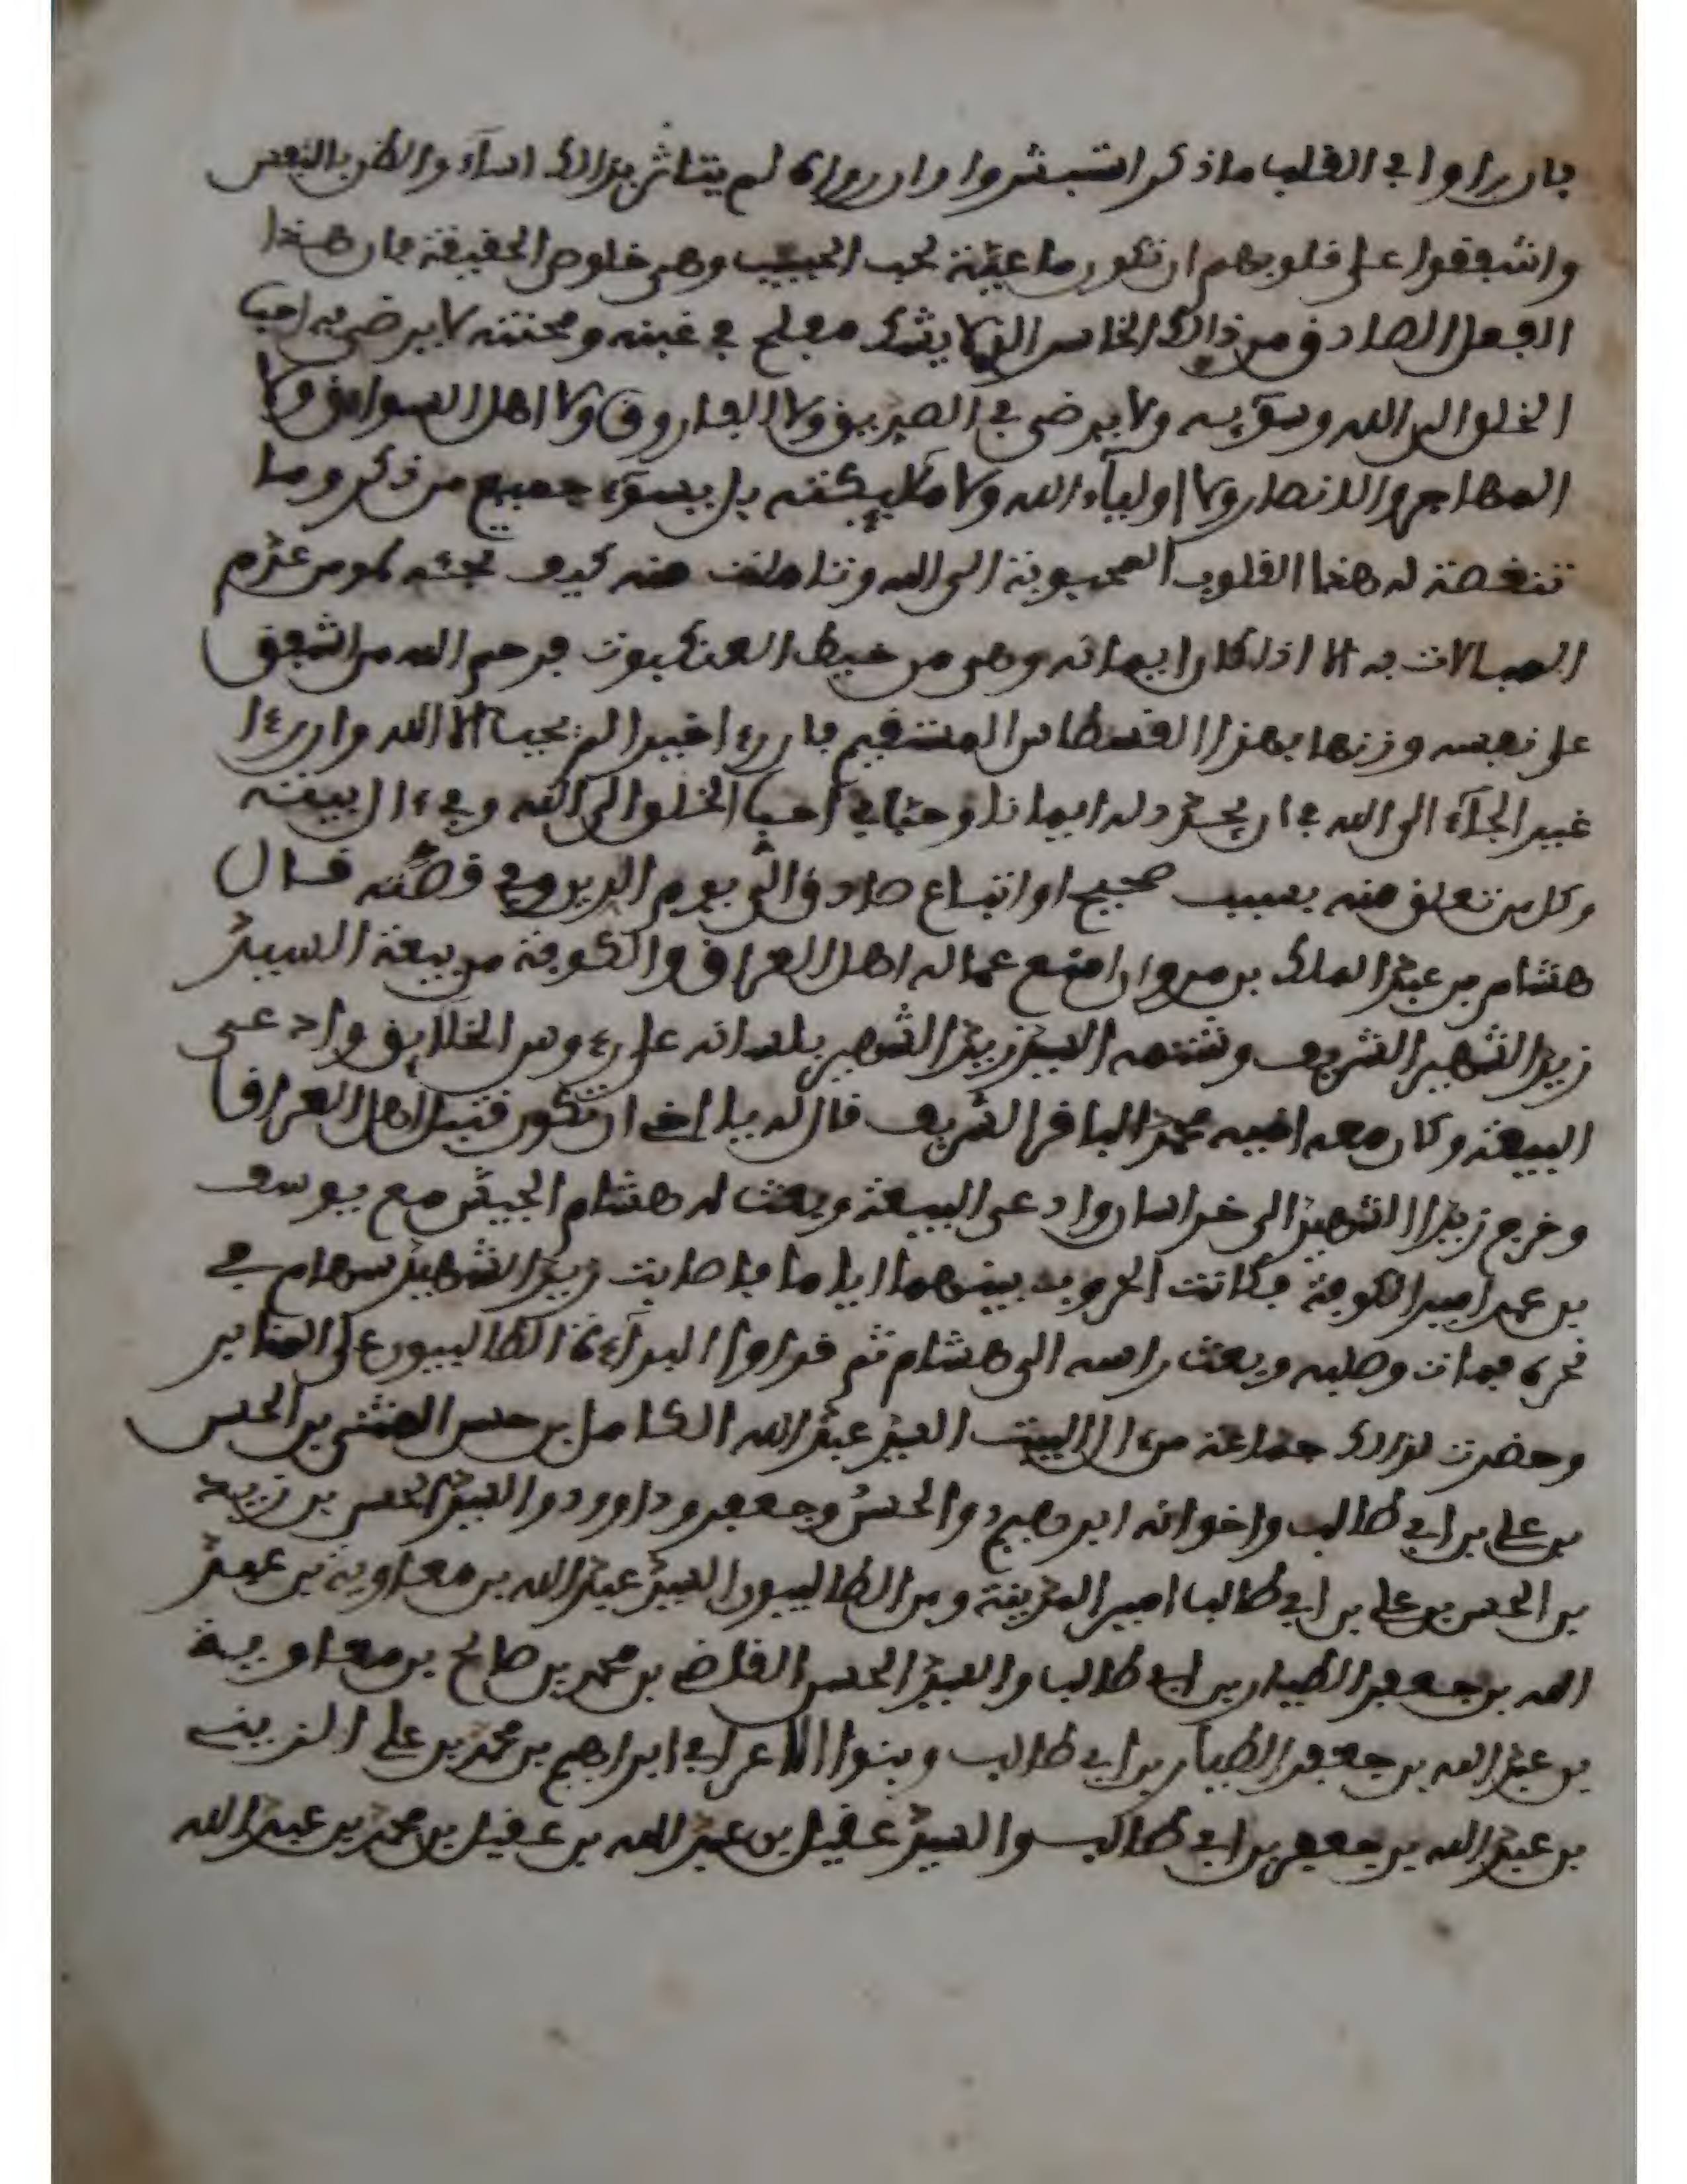 فان راوا في القلب ما ذكر استبشروا وان رواه لم يتاثر بذالك اساءوا الظن بالنفس
واشفقوا على قلوبهم ان تكون ما عينة لحب الحبيب وهي خلوص الحقيقة فان هذا
الفعل الصادق من ذالك الخاسر الذي لا يشك مفلح في غبنه ومحنته لا يرضى به احب
الخلق الى الله وسوء يسه ولا يرضى في الصديق ولا الفاروق ولا اهل السوابق ولا
المهاجر والانصار ولا اولياء الله ولا ملايكته بل يسوء جميع من ذكر وما
تنغصة له هذا القلوب المحبوبة الى الله وتنا منه كيف مومن عدم
المبالات به الا اذا كان ايمانه وهى من خيط العنكبوت فرحم الله من اشفق
على نفسه وزنها بهذا القسطاس المستقيم فان رءا خيرا لم يحب الا الله وان رءا
غير الجاء الى الله في ان يجدد له ايمانا وحبا في احب الخلق الى الله وفي ءال بيته
وكل من تعلق منه بسبب صحيح او اتباع صادق الى يوم الدين وفي قصته قال
هشام بن عبد الملك بن مروان امنع عماله اهل العراق والكوفة من بيعة السيد
زيد الشهير الشريف وشتمه السيد زيد الشهير بلسانه على رءوس الخلايق وادعى
البيعة وكان معه اخيه محمد الباقر الشريف قال له يا اخي ان تكون قتيل اهل العراق
وخرج زيد الشهيد الى خراسان وادعى البيعة وبعث له هشام الجيش مع يوسف
بن عمر امير الكوفة فكانت الحروب بينهما اياما فاصابت زيد الشهيد سهام في
نحره فمات وصلبه وبعث راسه الى هشام ثم قراوا البراءة الطالبيون على المنابر
وحضرت لذالك جماعة من ءال البيت السيد عبد الله الكامل بن حسن المثنى بن الحسن
بن علي بن ابي طالب واخوانه ابرهيم والحسن وجعفر وداوود والسيد الحسن بن زيد
بن الحسن بن علي بن ابي طالب امير المدينة ومن الطالبيون السيد عبد الله بن معاوية بن عبد
الله بن جعفر الطيار بن ابي طالب والسيد الحسن القاضي بن محمد بن صالح بن معاوية
بن عبد الله بن جعفر الطيار بن ابي طالب وبنوا الاعرابي ابراهيم بن محمد بن علي الزينبي
بن عبد الله بن جعفر بن ابي طالب والسيد عقيل بن عبد الله بن عقيل بن محمد بن عبد الله